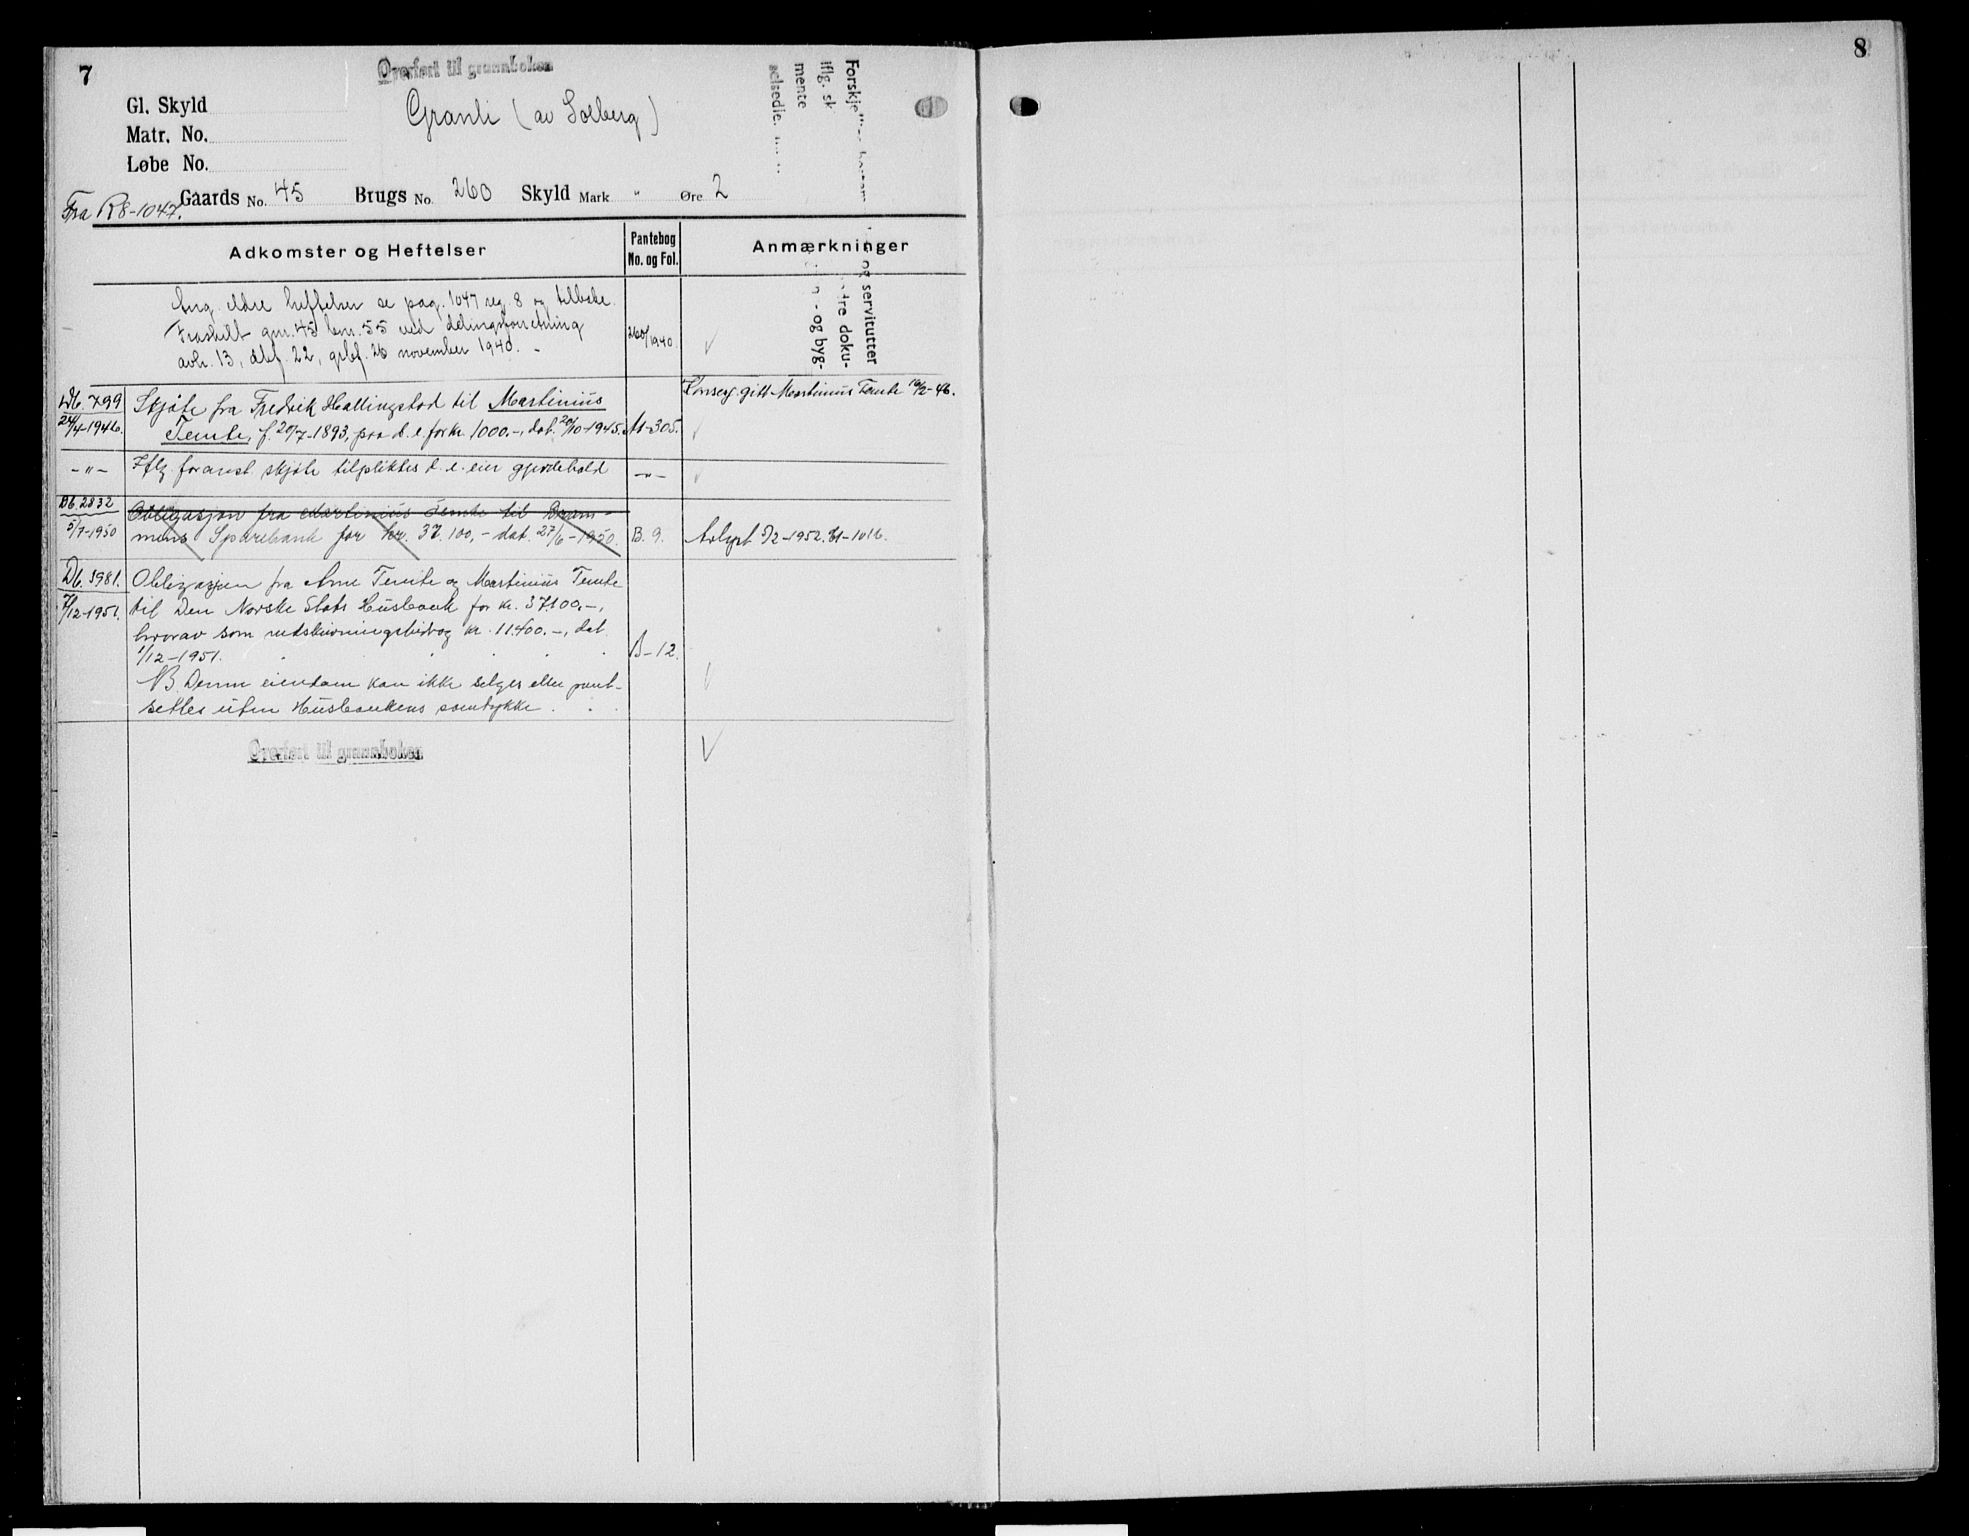 7
Overført til grunnboken
Gl. Skyld
Granli (av Solberg)
Matr. No.
Løbe No.
Forskjellige
iflg. sk
mente
Fra R8-1047.
Gaards No. 45 Brugs No. 260 Skyld Mark " Øre 2
Adkomster og Heftelser
Pantebog
No. og Fol.
Anmærkninger
og servitutter
dre doku-
- og byg-
Ang. eldre heftelser se pag. 1047 reg. 8 og tilbake.
Fraskilt gnr. 45 bnr. 55 ved delingsforretning
avh. 13, dbf. 22, grbf. 26 november 1940.
260/1940.
Db. 799
24/4-1946.
Skjøte fra Fredrik Hallingstad til Martinius
Temte, f. 20/7-1893, paa d. e. for kr. 1000.-, dat. 20/10-1945.
A1-305.
Konsesj. gitt Martinius Temte 16/2-46.
-"-
Iflg. foranst. skjøte tilpliktes d. e. eier gjerdehold
-"-
Db. 2832
5/7-1950
Obligasjon fra Martinius Temte til Dram-
mens Sparebank for kr. 37.100,- dat. 27/6-1950.
B. 9.
Avlyst 7/2-1952. A1-1016.
Db. 5981.
7/12-1951.
Obligasjon fra Arne Temte og Martinius Temte
til Den Norske Stats Husbank for kr. 37.100.-,
hvorav som nedskrivningsbidrag kr. 11.400.-, dat.
1/12-1951.
B-12.
NB. Denne eiendom kan ikke selges eller pant-
settes uten Husbankens samtykke.
Overført til grunnboken
8